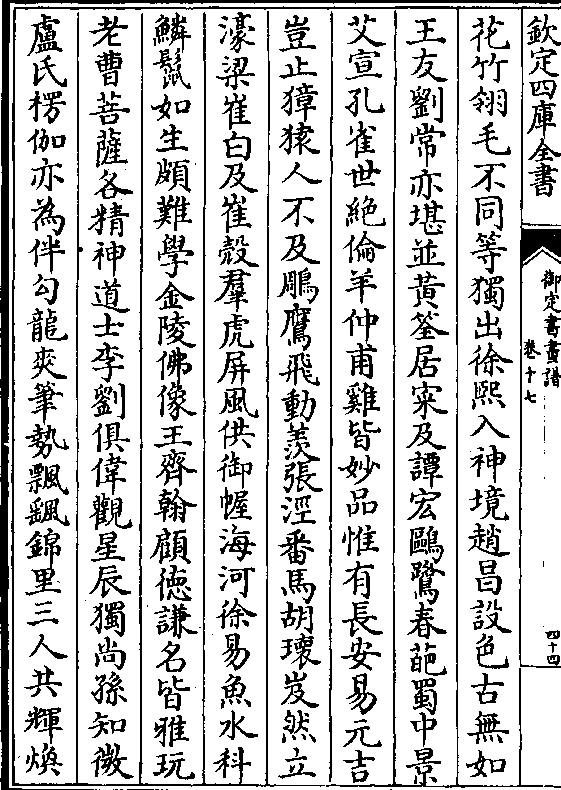 欽定四庫全書
御定書畫譜
卷十七
四十四
花竹翎毛不同等獨出徐熙入神境趙昌設色古無如
王友劉常亦堪並黃筌居寀及譚宏鷗鷺春葩蜀中景
艾宣孔雀世絶倫羊仲甫雞皆妙品惟有長安易元吉
豈止獐猿人不及鵰鷹飛動羡張涇番馬胡瓌岌然立
濠梁崔白及崔慤羣虎屏風供御幄海河徐易魚水科
鱗鬛如生頗難學金陵佛像王齊翰顧德謙名皆雅玩
老曹菩薩各精神道士李劉俱偉觀星辰獨尚孫知微
盧氏楞伽亦為伴勾龍爽筆勢飄飄錦里三人共輝煥